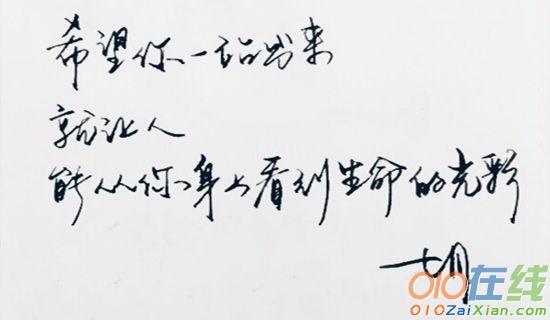 希望你一站出来
就让人
能从你身上看到生命的光彩
七月
010在线
010ZaiXian.com